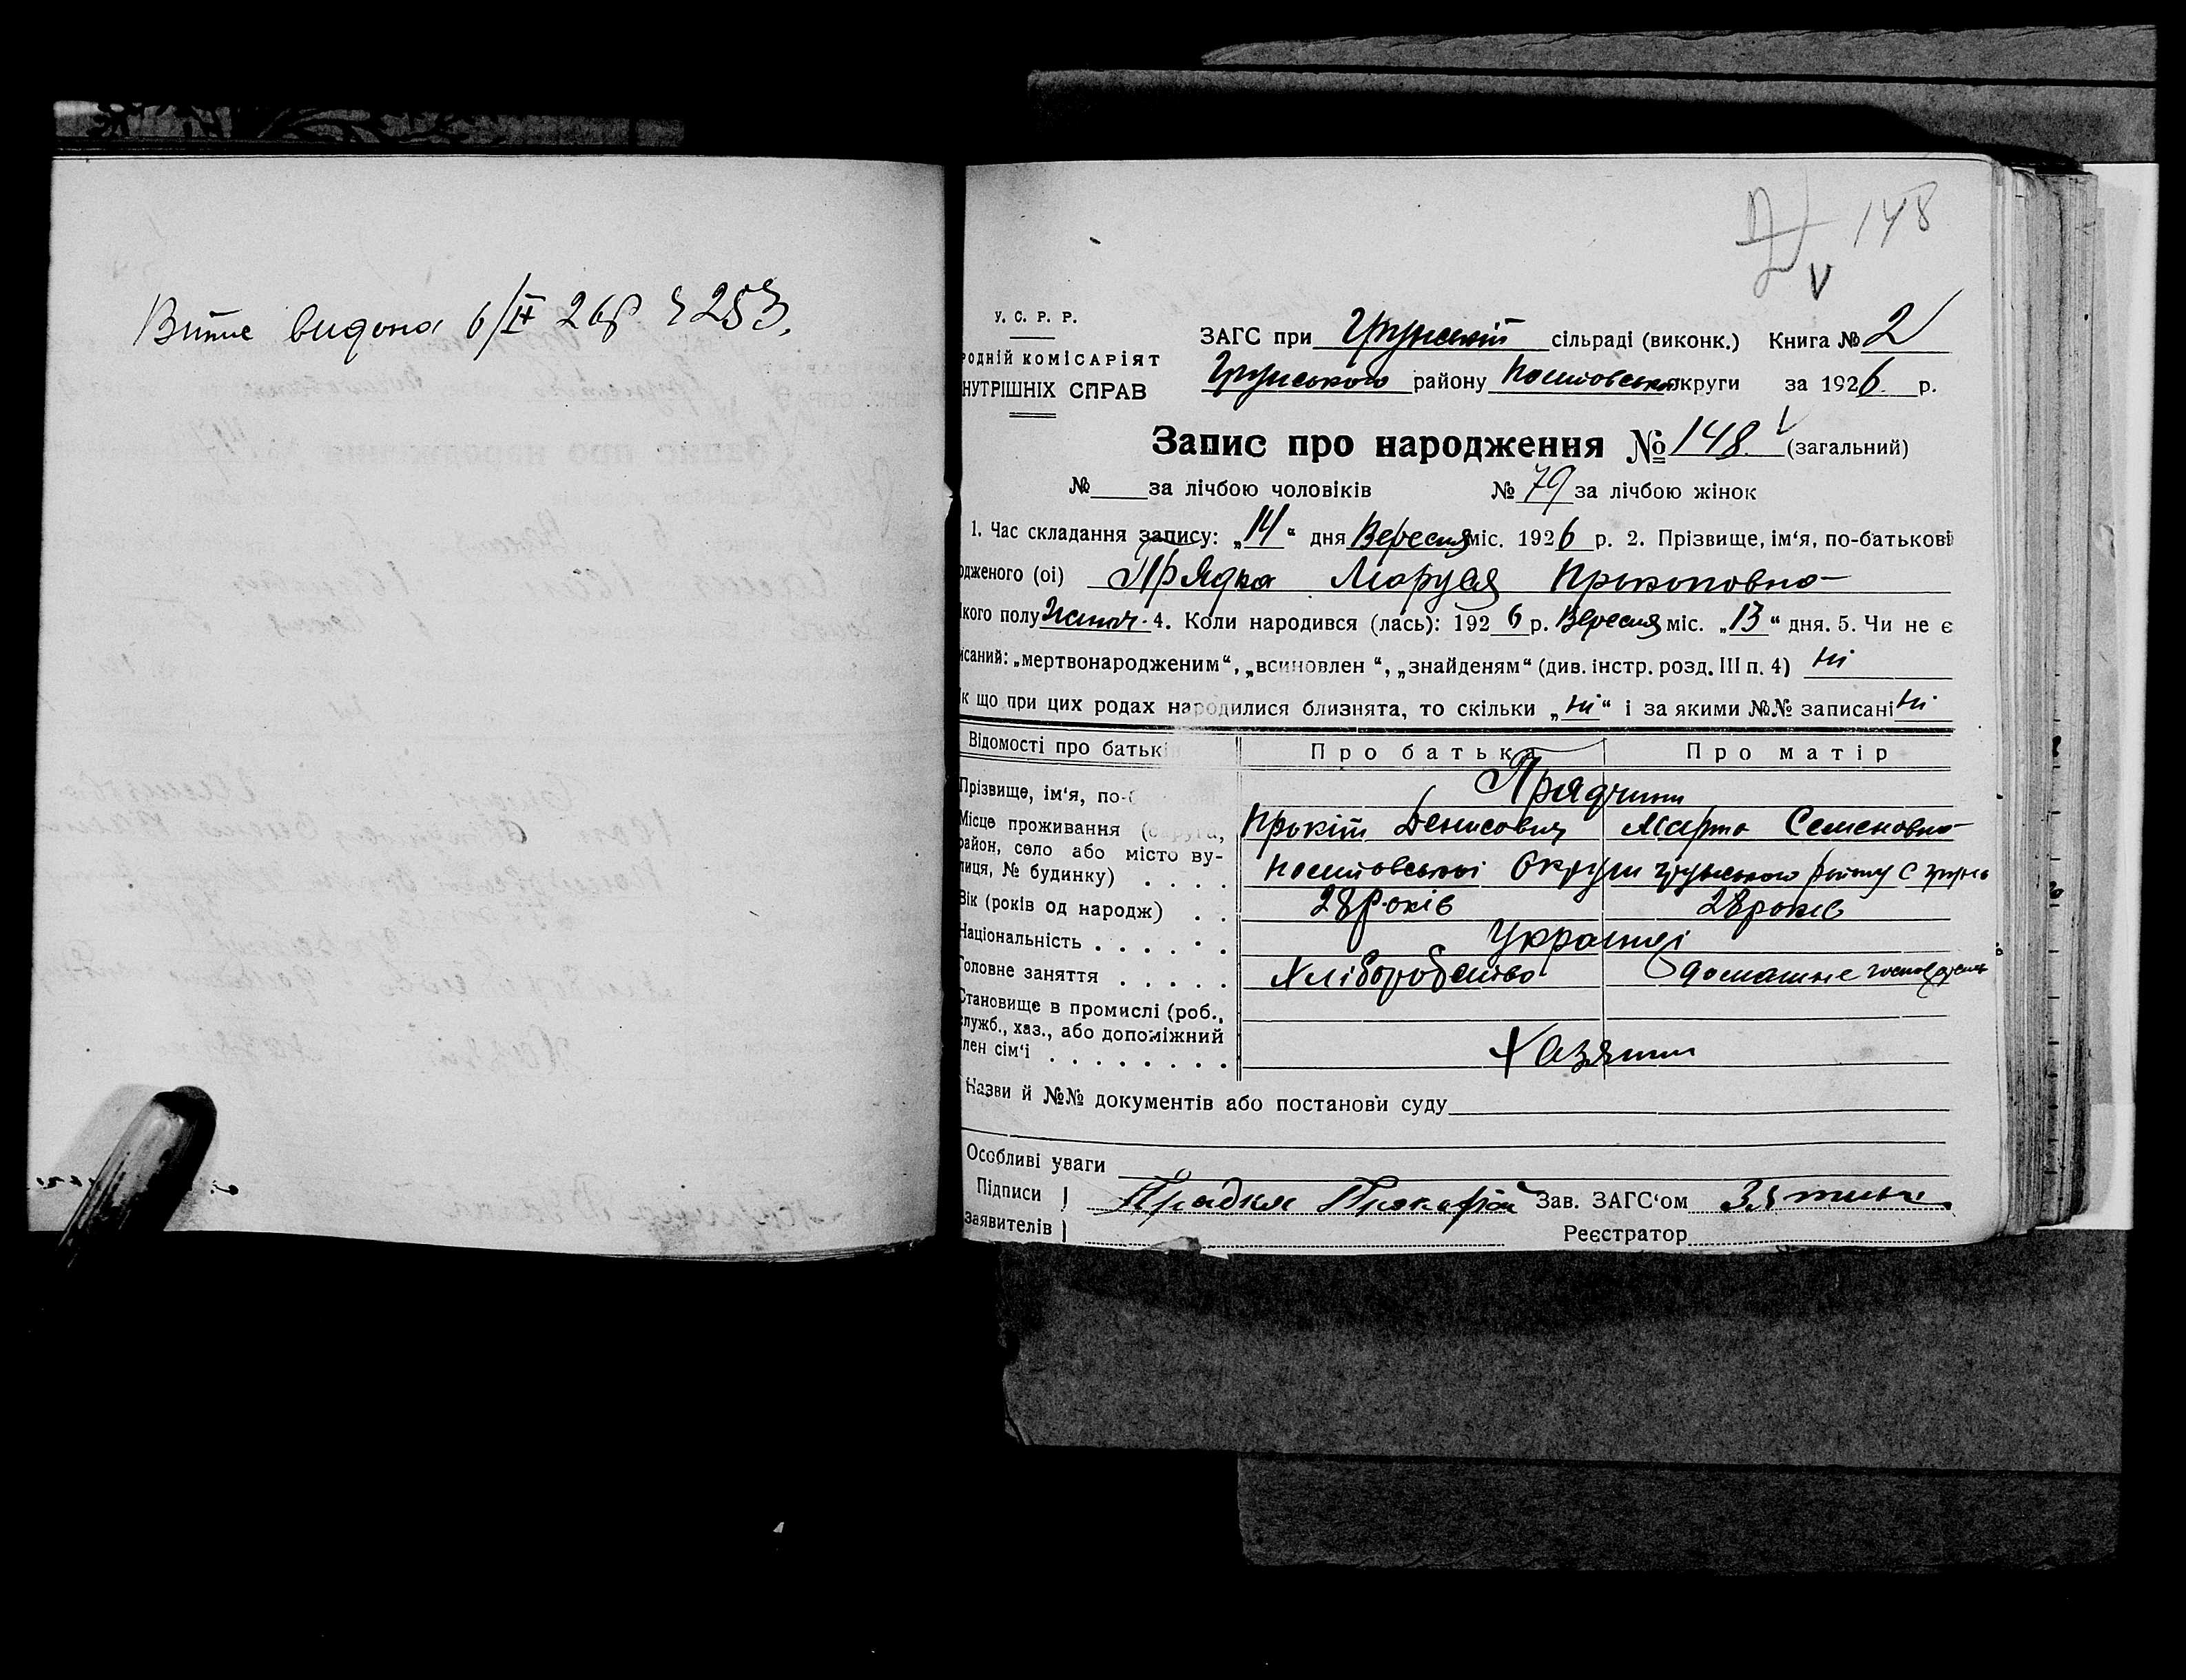 Витис видона 6/IX 26р 253.
148
V
У. С. Р. Р.
ОДНІЙ КОМІСАРІЯТ
НУТРІШНІХ СПРАВ
ЗАГС при Грунській сільраді (виконк.) Книга № 2
Грунського району округи за 1926 р.
Запис про народження № 148. (загальний)
№ за лічбою чоловіків № 79 за лічбою жінок
1. Час складання запису: „14“ дня Вересня міс. 1926 р. 2. Прізвище, ім‘я, по-батькові
одженого (ої) Прядка Маруся Прокоповна
кого полу 4. Коли народився (лась): 1926 р. Вересня міс. „13“ дня. 5. Чи не є
исаний: „мертвонародженим“, „всиновлен “, „знайденям“ (див. інстр. розд. III п. 4) ні
к що при цих родах народилися близнята, то скільки „ні“ і за якими №№ записані ні
Відомості про батькі Про батька Про матір
Прізвище, ім‘я, по- Прядчини
Прокіп Денисович Марта Семеновна
Місце проживання (округа,
район, село або місто ву-
лиця, № будинку) . . . . Округи грунського району с грунь
Вік (років од народж) . . 28 років 28 років
Національність . . . . . . Українці
Головне заняття . . . . . Хліборобство домашнє
Становище в промислі (роб.,
служб., хаз., або допоміжний
член сім‘ї . . . . . . . . Хазяини
Назви й №№ документів або постанови суду
Особливі уваги
Підписи Прадка Зав. ЗАГС‘ом
заявителів Реєстратор